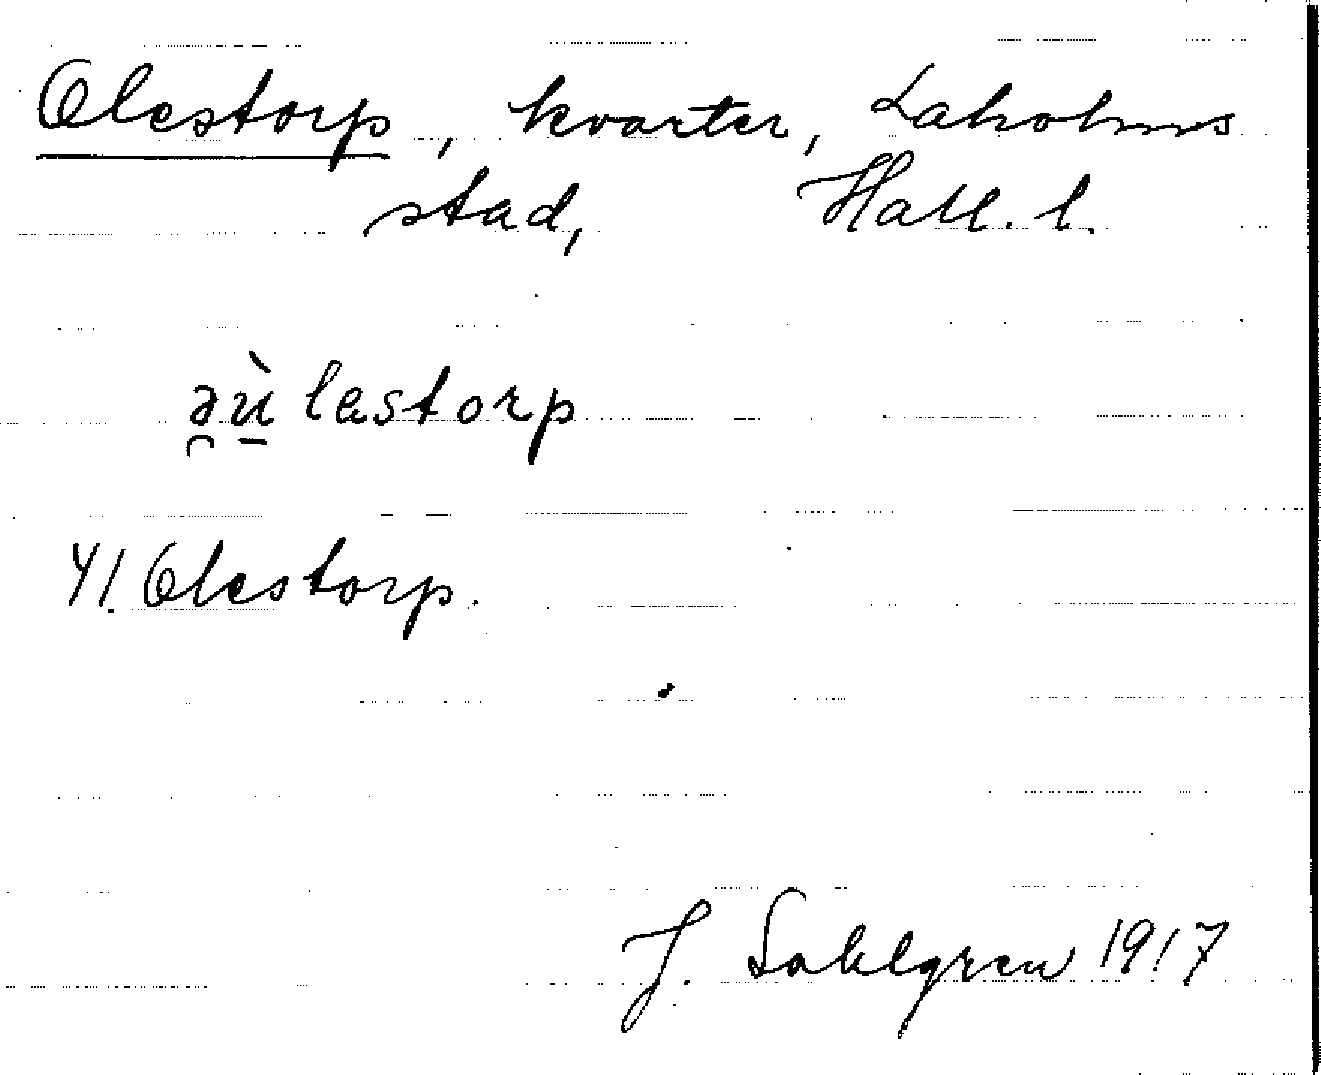 Olestorp, kvarter, Laholms
stad, Hall. l.
ə̯ṳ̀lestorp
41. Olestorp.
J. Sahlgren 1917